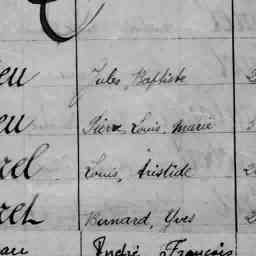 eu Jules, Baptiste
eu Pierre, Louis, Marie
rel Louis, Aristide
ret Bernard, Yves
André François